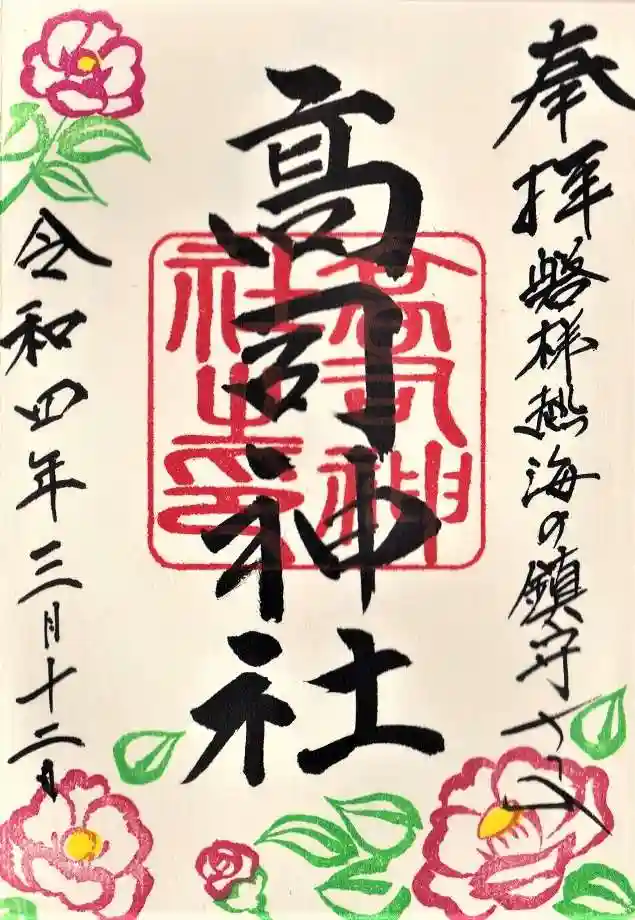 奉拝磐梯熱海の鎮守さま
高司神社
高司神社之印
令和四年三月十二日